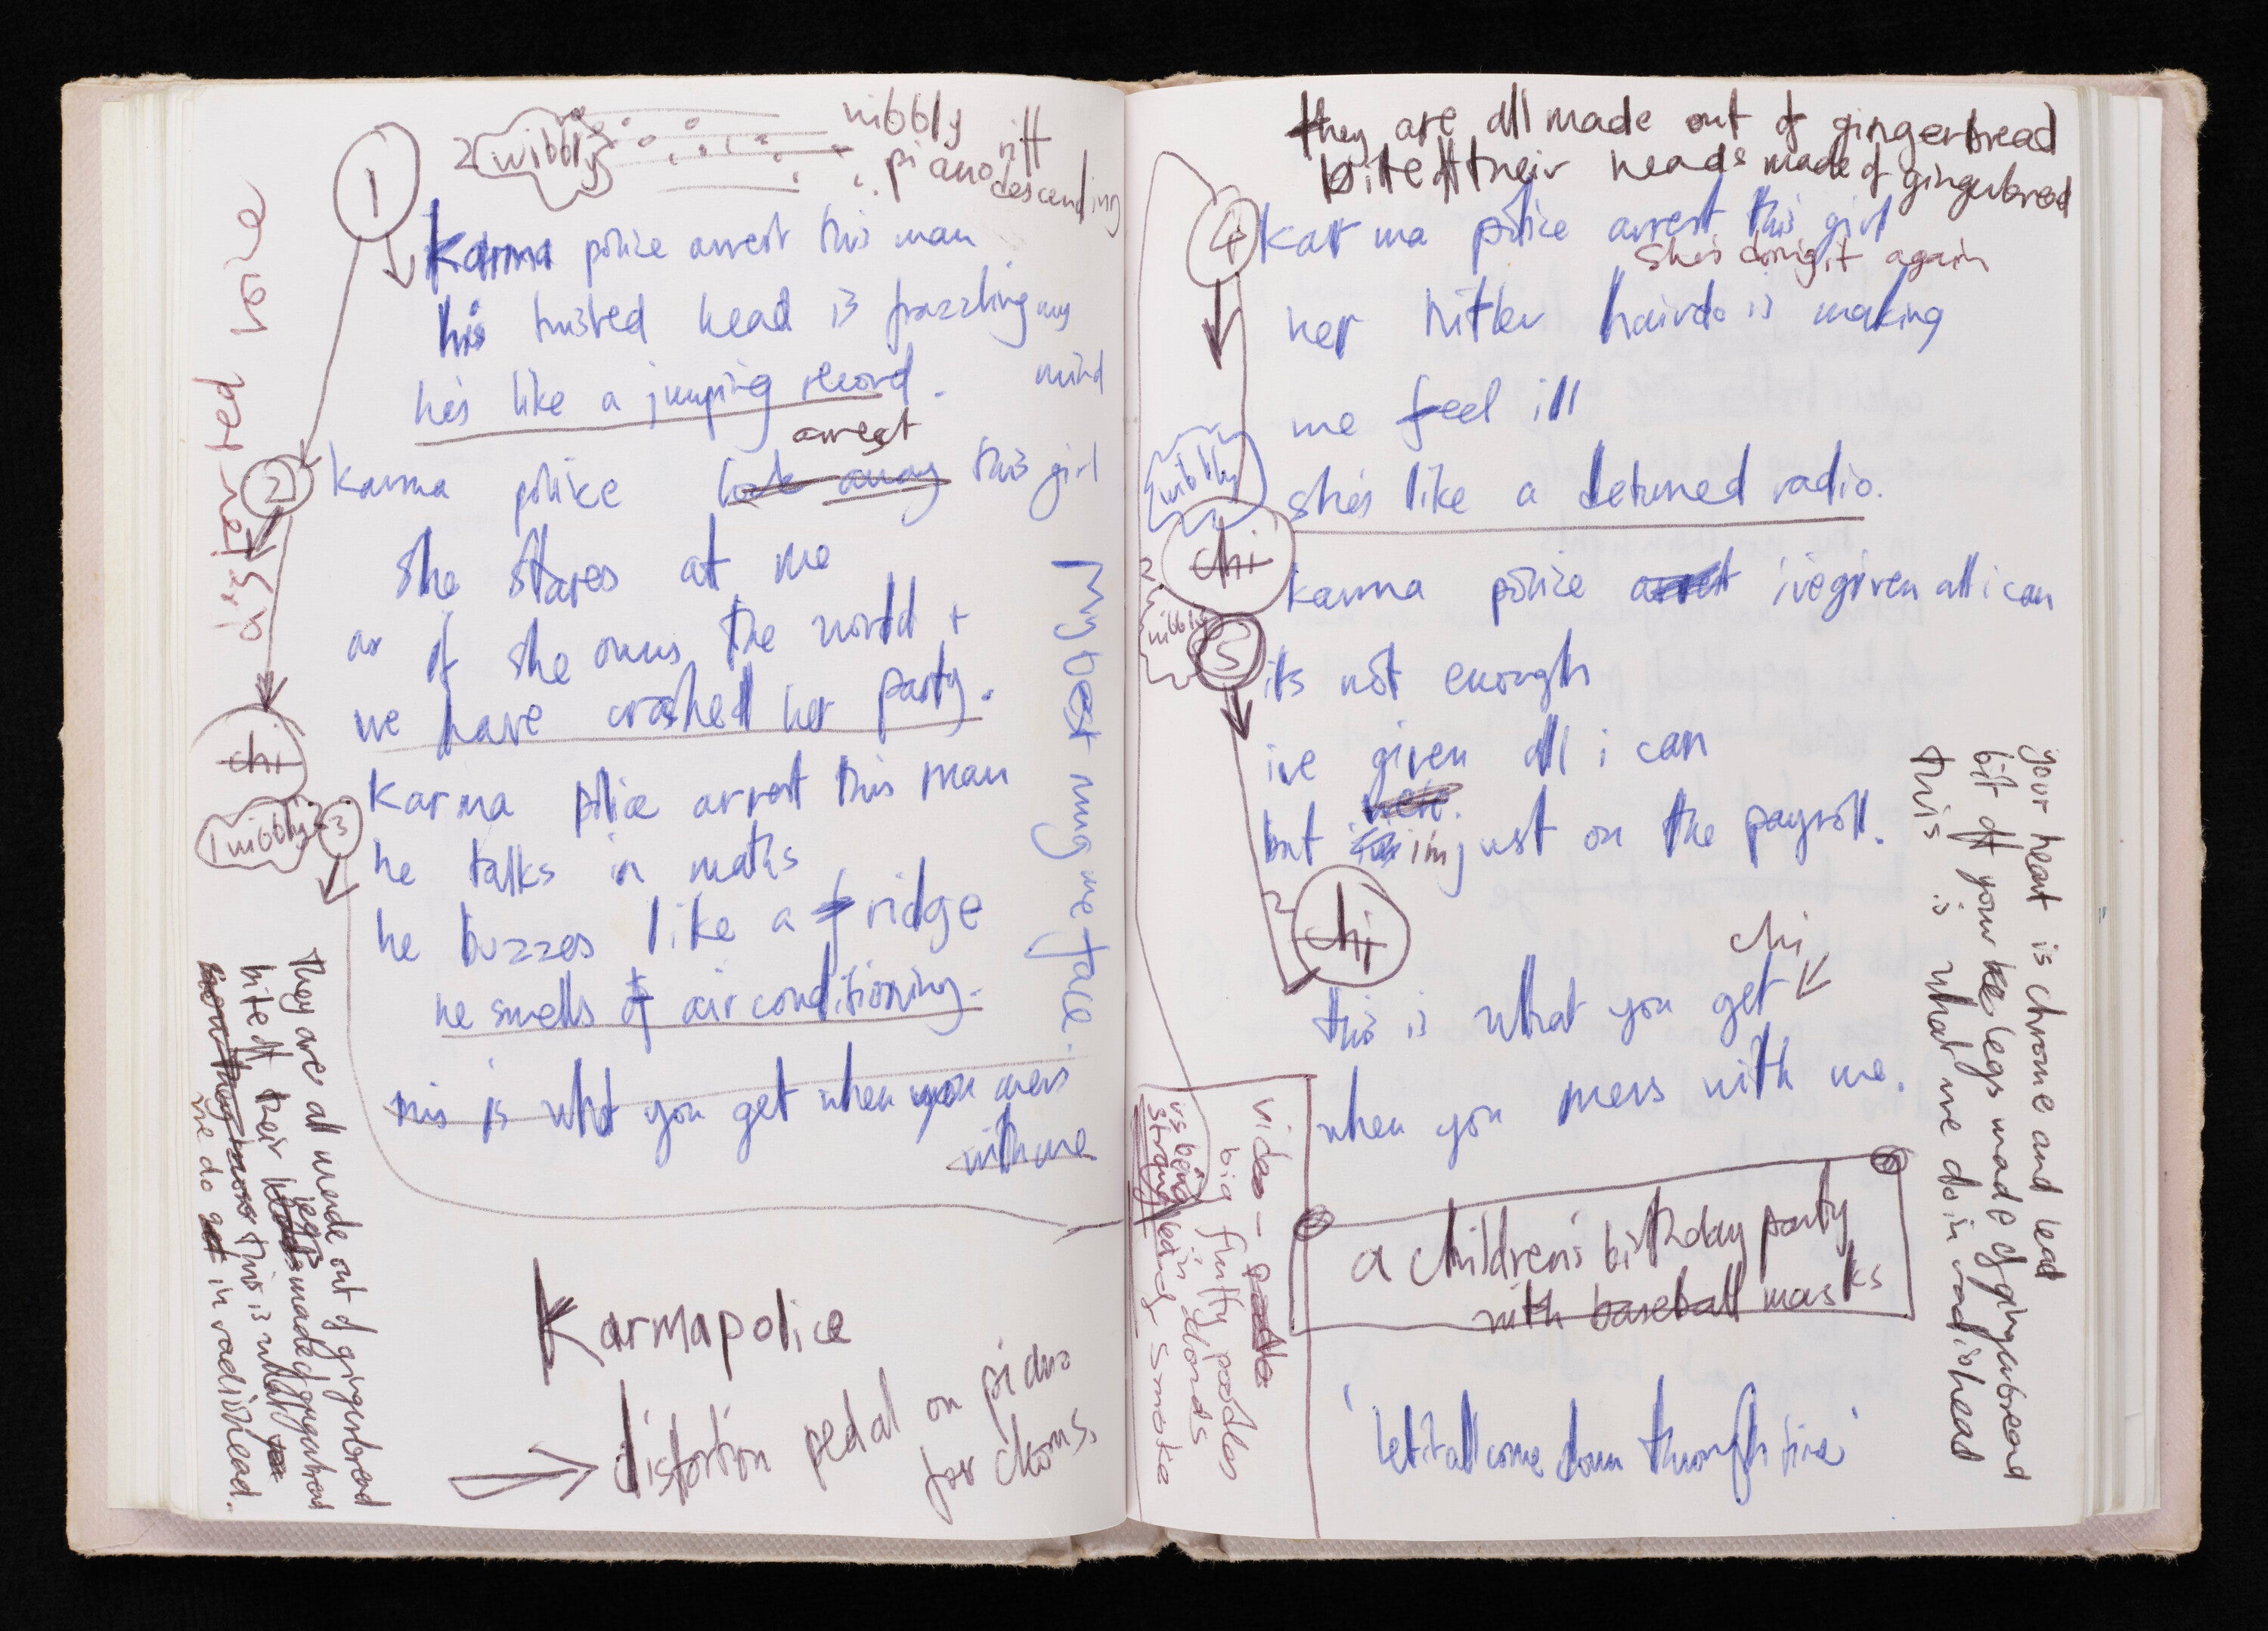 1
2 nibbly
nibbly
piano riff
descending
Karma police arrest this man
his twisted head is frazzling my
mind
he's like a jumping record.
arrest
2
karma police lock away this girl
she stares at me
as if she owns the world +
we have crashed her party.
chi
1 nibbly
3
karma police arrest this man
he talks in maths
he buzzes like a fridge
he smells of air conditioning.
this is what you get when you mess
with me
Karmapolice
distortion pedal on piano
for chorus.
my best mug me face.
they are all made out of gingerbread
bite off their heads legs made of gingerbread
this is what
we do get in radiohead.
they are all made out of gingerbread
bite off their heads made of gingerbread
4
karma police arrest this girl
she's doing it again
her hitler hairdo is making
me feel ill
nibbly
she's like a detuned radio.
chi
karma police arrest ive given all i can
nibbly
5
its not enough
ive given all i can
but im just on the payroll.
chi
chi
this is what you get
when you mess with me.
a children's birthday party
with baseball masks
'let it all come down through time'
video - poodle
big fluffy poodles
in clouds
us being strangled in smoke
your heart is chrome and lead
bit off your legs made of gingerbread
this is what we do in radiohead